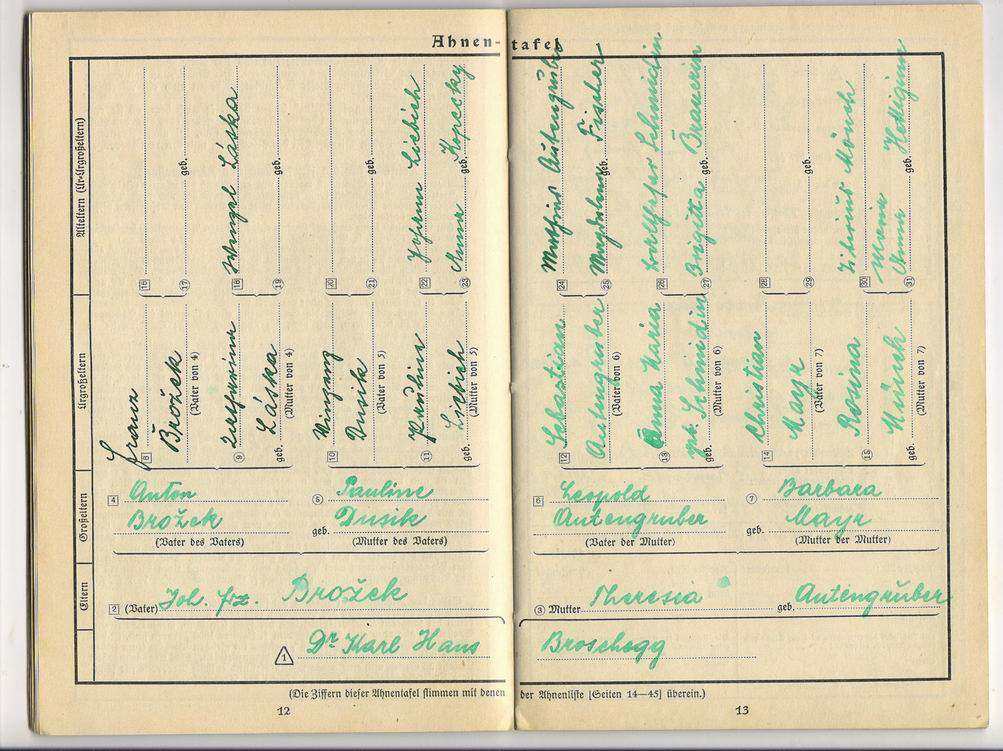 Ahnen-tafel
Alteltern (Ur-Urgroßeltern)
16
17 geb.
18 Wenzel Láska
19 geb.
20
21 geb.
22 Johann Liebich
23 Anna geb. Kopecky
24 Mathias Autengruber
25 Magdalena geb. Fischer
26 Balthasar Schmidin
27 Brigitta geb. Brauerin
28
29 geb.
30 Mönch
31 Maria
Anna geb.
Urgroßeltern
8 Franz
Brožek
(Vater von 4)
9
geb. Láska
(Mutter von 4)
10 Vinzenz
Dusik
(Vater von 5)
11 Paulina
geb. Liebich
(Mutter von 5)
12 Sebastian
Autengruber
(Vater von 6)
13 Anna Maria
geb. Schmidin
geb.
(Mutter von 6)
14 Christian
Mayr
(Vater von 7)
15 Rosina
geb. Münch
(Mutter von 7)
Großeltern
4 Anton
Brožek
(Vater des Vaters)
5 Pauline
geb. Dusik
(Mutter des Vaters)
6 Leopold
Autengruber
(Vater der Mutter)
7 Barbara
geb. Mayr
(Mutter der Mutter)
Eltern
2 (Vater) Joh. Frz. Brožek
3 Mutter Theresia geb. Autengruber
1 Dr Karl Hans Broschegg
(Die Ziffern dieser Ahnentafel stimmen mit denen der Ahnenliste [Seiten 14—45] überein.)
12
13